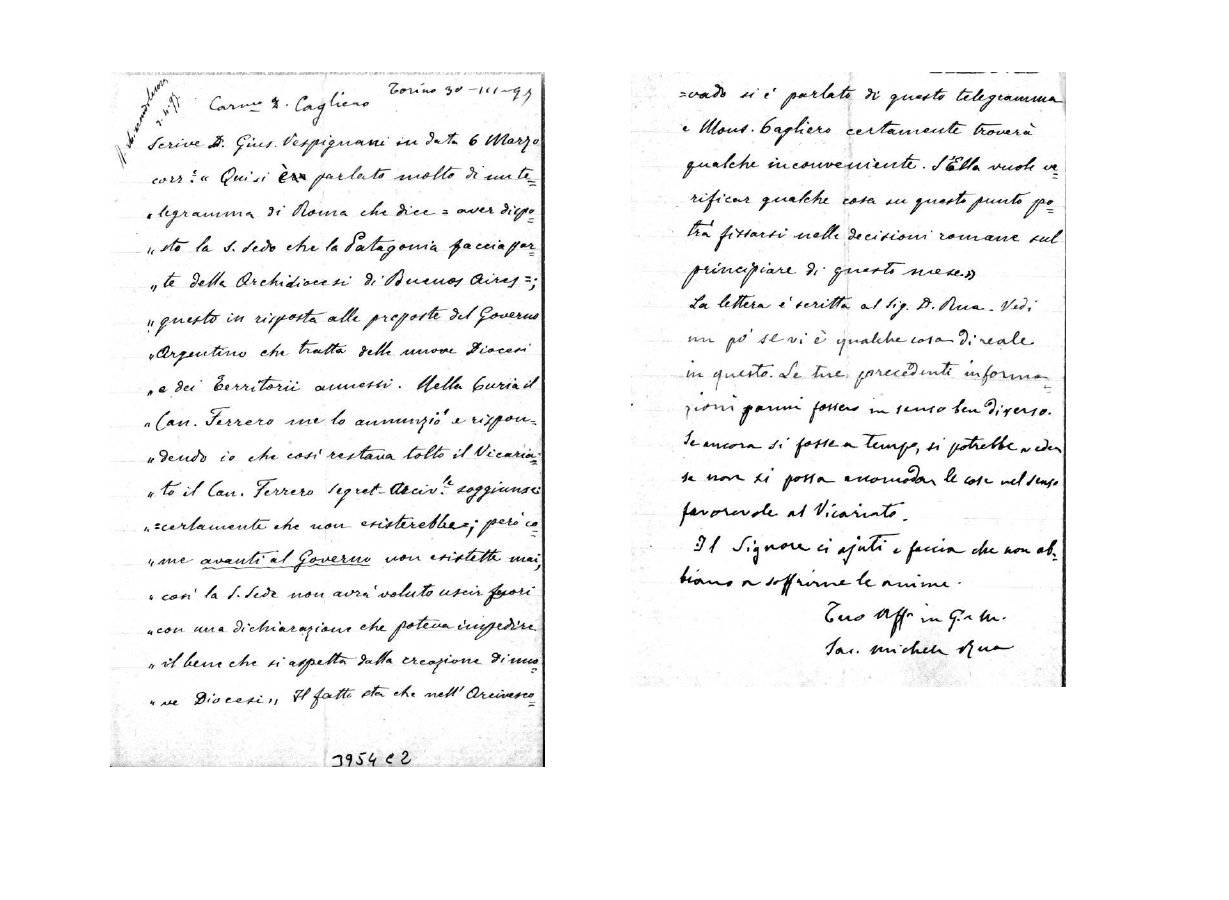 Torino 30-III-97
2.4.97
Carmo D. Cagliero
Scrive D. Gius. Vespignani in data 6 Marzo
corr.e " Qui si è parlato molto di un te=
" legramma di Roma che dice = aver dispo=
" sto la S. Sede che la Patagonia faccia par=
" te della Archidiocesi di Buenos Aires =;
" questo in risposta alle proposte del Governo
" Argentino che tratta delle nuove Diocesi
" e dei territorii annessi. Nella Curia il
" Can. Ferrero me lo annunziò e rispon=
" dendo io che così restava tolto il Vicaria=
" to il Can. Ferrero segret. Arciv.le soggiunse:
" =certamente che non esisterebbe=; però co=
" me avanti al Governo non esistette mai,
" così la S. Sede non avrà voluto uscir fuori
" con una dichiarazione che poteva impedire
" il bene che si aspetta dalla creazione di nuo=
" ve Diocesi,, Il fatto sta che nell' Arcivesco=
J954 C2
=vado si è parlato di questo telegramma
e Mons. Cagliero certamente troverà
qualche inconveniente. S'Ella vuole ve=
rificar qualche cosa su questo punto po=
trà fissarsi nelle decisioni romane sul
principiare di questo mese.»
La lettera è scritta al Sig. D. Rua. Vedi
un po' se vi è qualche cosa di reale
in questo. Le tue precedenti informa=
zioni parmi fossero in senso ben diverso.
Se ancora si fosse a tempo, si potrebbe veder
se non si possa accomodar le cose nel senso
favorevole al Vicariato.
Il Signore ci ajuti e faccia che non ab=
biano a soffrirne le anime.
Tuo Aff. in G. e M.
Sac. Michele Rua